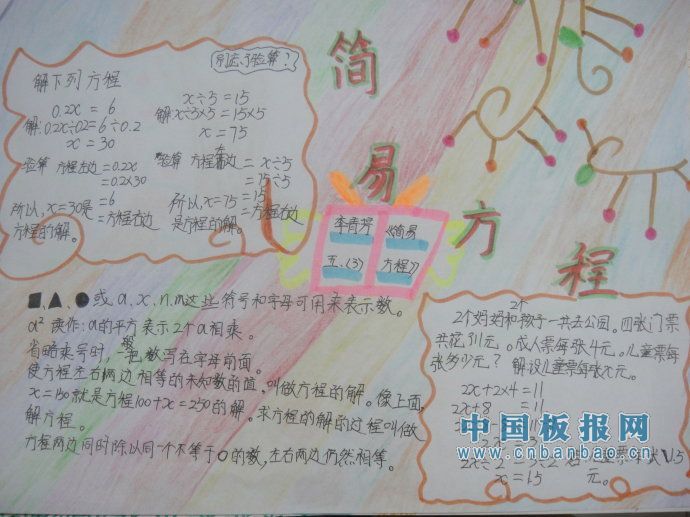 简易方程
别忘了验算？
解下列方程
0.2x = 6
解：0.2x÷0.2=6÷0.2
x = 30
验算 方程左边=0.2x
=0.2×30
=6
所以，x=30是 =方程右边
方程的解。
x÷5=15
解 x÷5×5=15×5
x = 75
验算 方程左边 = x÷5
= 75÷5
= 15
所以，x=75 =方程右边
是方程的解。
李青芳
五、(3)
《简易
方程》
■、▲、●或a、x、n、m这些符号和字母可用来表示数。
a² 读作：a的平方 表示2个a相乘。
省略乘号时，一般把数写在字母前面。
使方程左右两边相等的未知数的值，叫做方程的解。像上面，
x=150就是方程100+x=250的解。求方程的解的过程叫做
解方程。
方程两边同时除以同一个不等于0的数，左右两边仍然相等。
2个妈妈和2个孩子一共去公园。四张门票
共花11元。成人票每张4元。儿童票每
张多少元？ 解设儿童票每张x元。
2x+2×4=11
2x+8 =11
2x÷2=3÷2
x = 1.5 元。
中国板报网
www.cnbanbao.cn